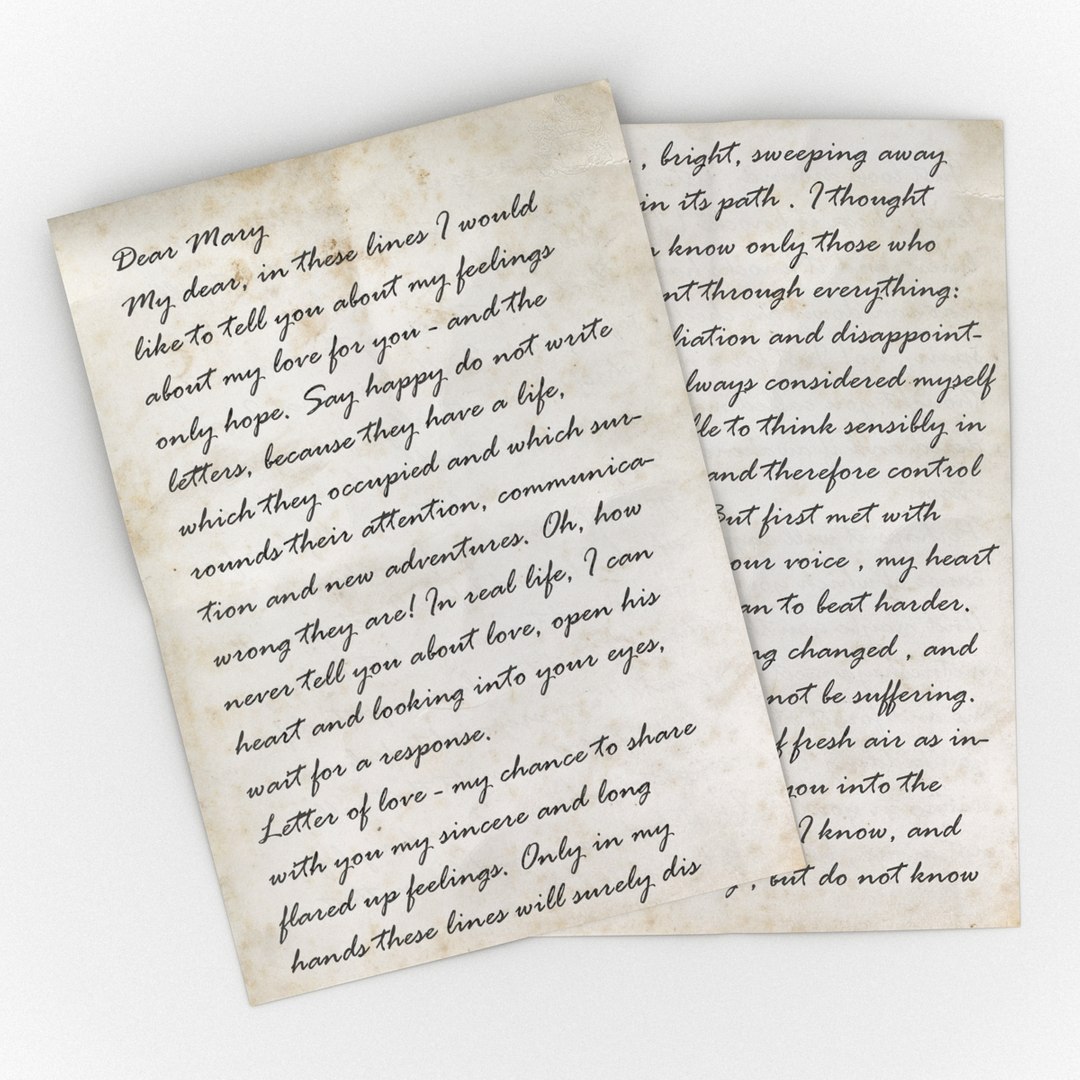 Dear Mary
My dear, in these lines I would
like to tell you about my feelings
about my love for you - and the
only hope. Say happy do not write
letters, because they have a life,
which they occupied and which sur-
rounds their attention, communica-
tion and new adventures. Oh, how
wrong they are! In real life, I can
never tell you about love, open his
heart and looking into your eyes,
wait for a response.
Letter of love - my chance to share
with you my sincere and long
flared up feelings. Only in my
hands these lines will surely dis
, bright, sweeping away
in its path . I thought
know only those who
through everything:
and disappoint-
considered myself
to think sensibly in
and therefore control
But first met with
voice , my heart
to beat harder.
changed , and
not be suffering.
fresh air as in-
you into the
I know, and
, but do not know